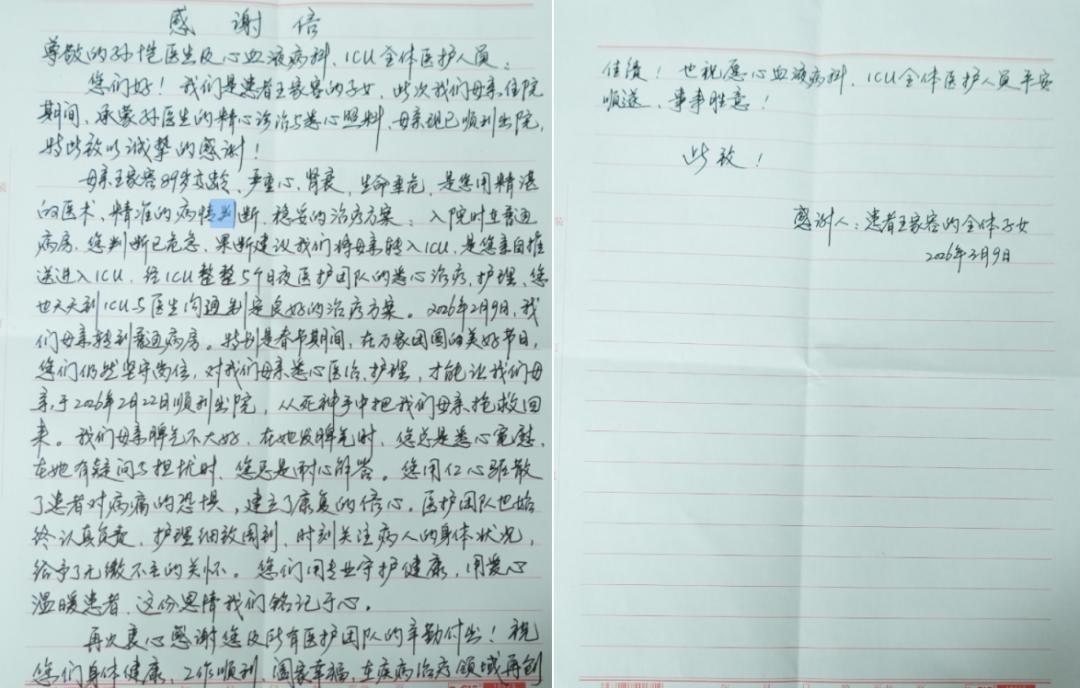 感谢信
尊敬的孙性医生及心血液病科、ICU全体医护人员：
您们好！我们是患者王家容的子女，此次我们母亲住院
期间，承蒙孙医生的精心诊治与悉心照料，母亲现已顺利出院，
特此致以诚挚的感谢！
母亲王家容89岁高龄、严重心、肾衰，生命垂危，是您用精湛
的医术、精准的病情判断、稳妥的治疗方案：入院时在普通
病房，您判断已危急，果断建议我们将母亲转入ICU，是您亲自推
送进入ICU，经ICU整整5个日夜医护团队的悉心治疗、护理、您
也天天到ICU与医生沟通制定良好的治疗方案。2026年2月9日，我
们母亲转到普通病房。特别是春节期间，在万家团圆的美好节日，
您们仍然坚守岗位，对我们母亲悉心医治、护理，才能让我们母
亲于2026年2月22日顺利出院，从死神手中把我们母亲抢救回
来。我们母亲脾气不大好，在她发脾气时，您总是悉心宽慰，
在她有疑问与担扰时，您总是耐心解答。您用仁心驱散
了患者对病痛的恐惧，建立了康复的信心。医护团队也始
终认真负责、护理细致周到、时刻关注病人的身体状况，
给予了无微不至的关怀。您们用专业守护健康，用爱心
温暖患者，这份恩情我们铭记于心。
再次衷心感谢您及所有医护团队的辛勤付出！祝
您们身体健康，工作顺利，阖家幸福，在疾病治疗领域再创
佳绩！也祝愿心血液病科、ICU全体医护人员平安
顺遂、事事胜意！
此致！
感谢人：患者王家容的全体子女
2026年3月9日